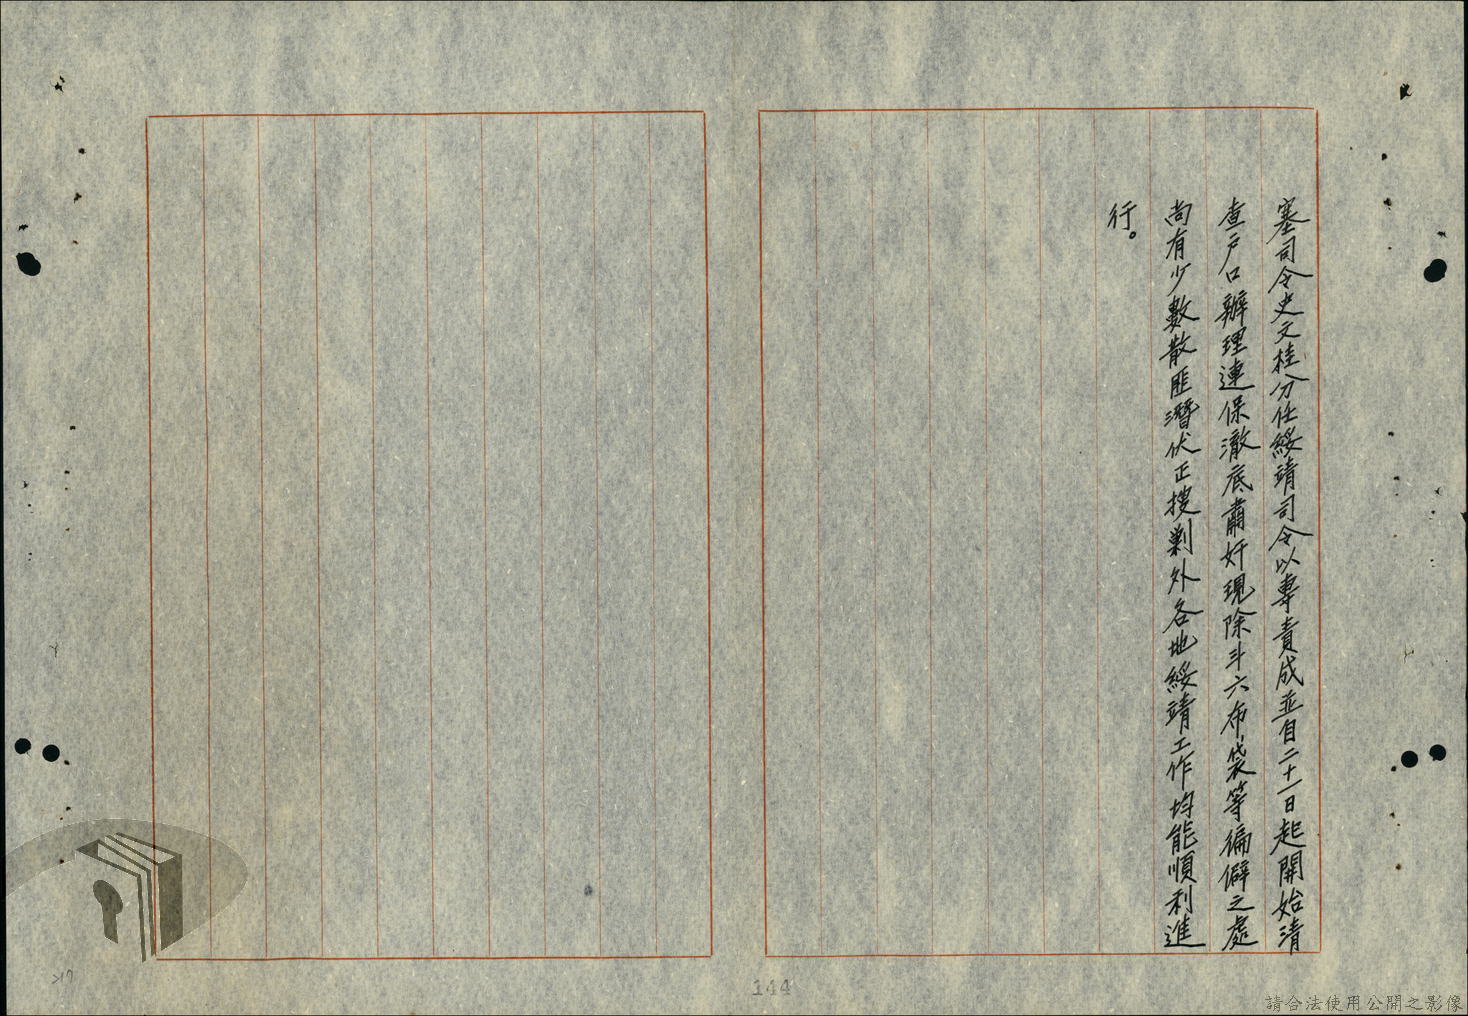 塞司令史文桂分任綏靖司令以專責成並自二十一日起開始清
查戶口辦理連保澈底肅奸現除斗六布袋等偏僻之處
尚有少數散匪潛伏正搜剿外各地綏靖工作均能順利進
行。
144
請合法使用公開之影像